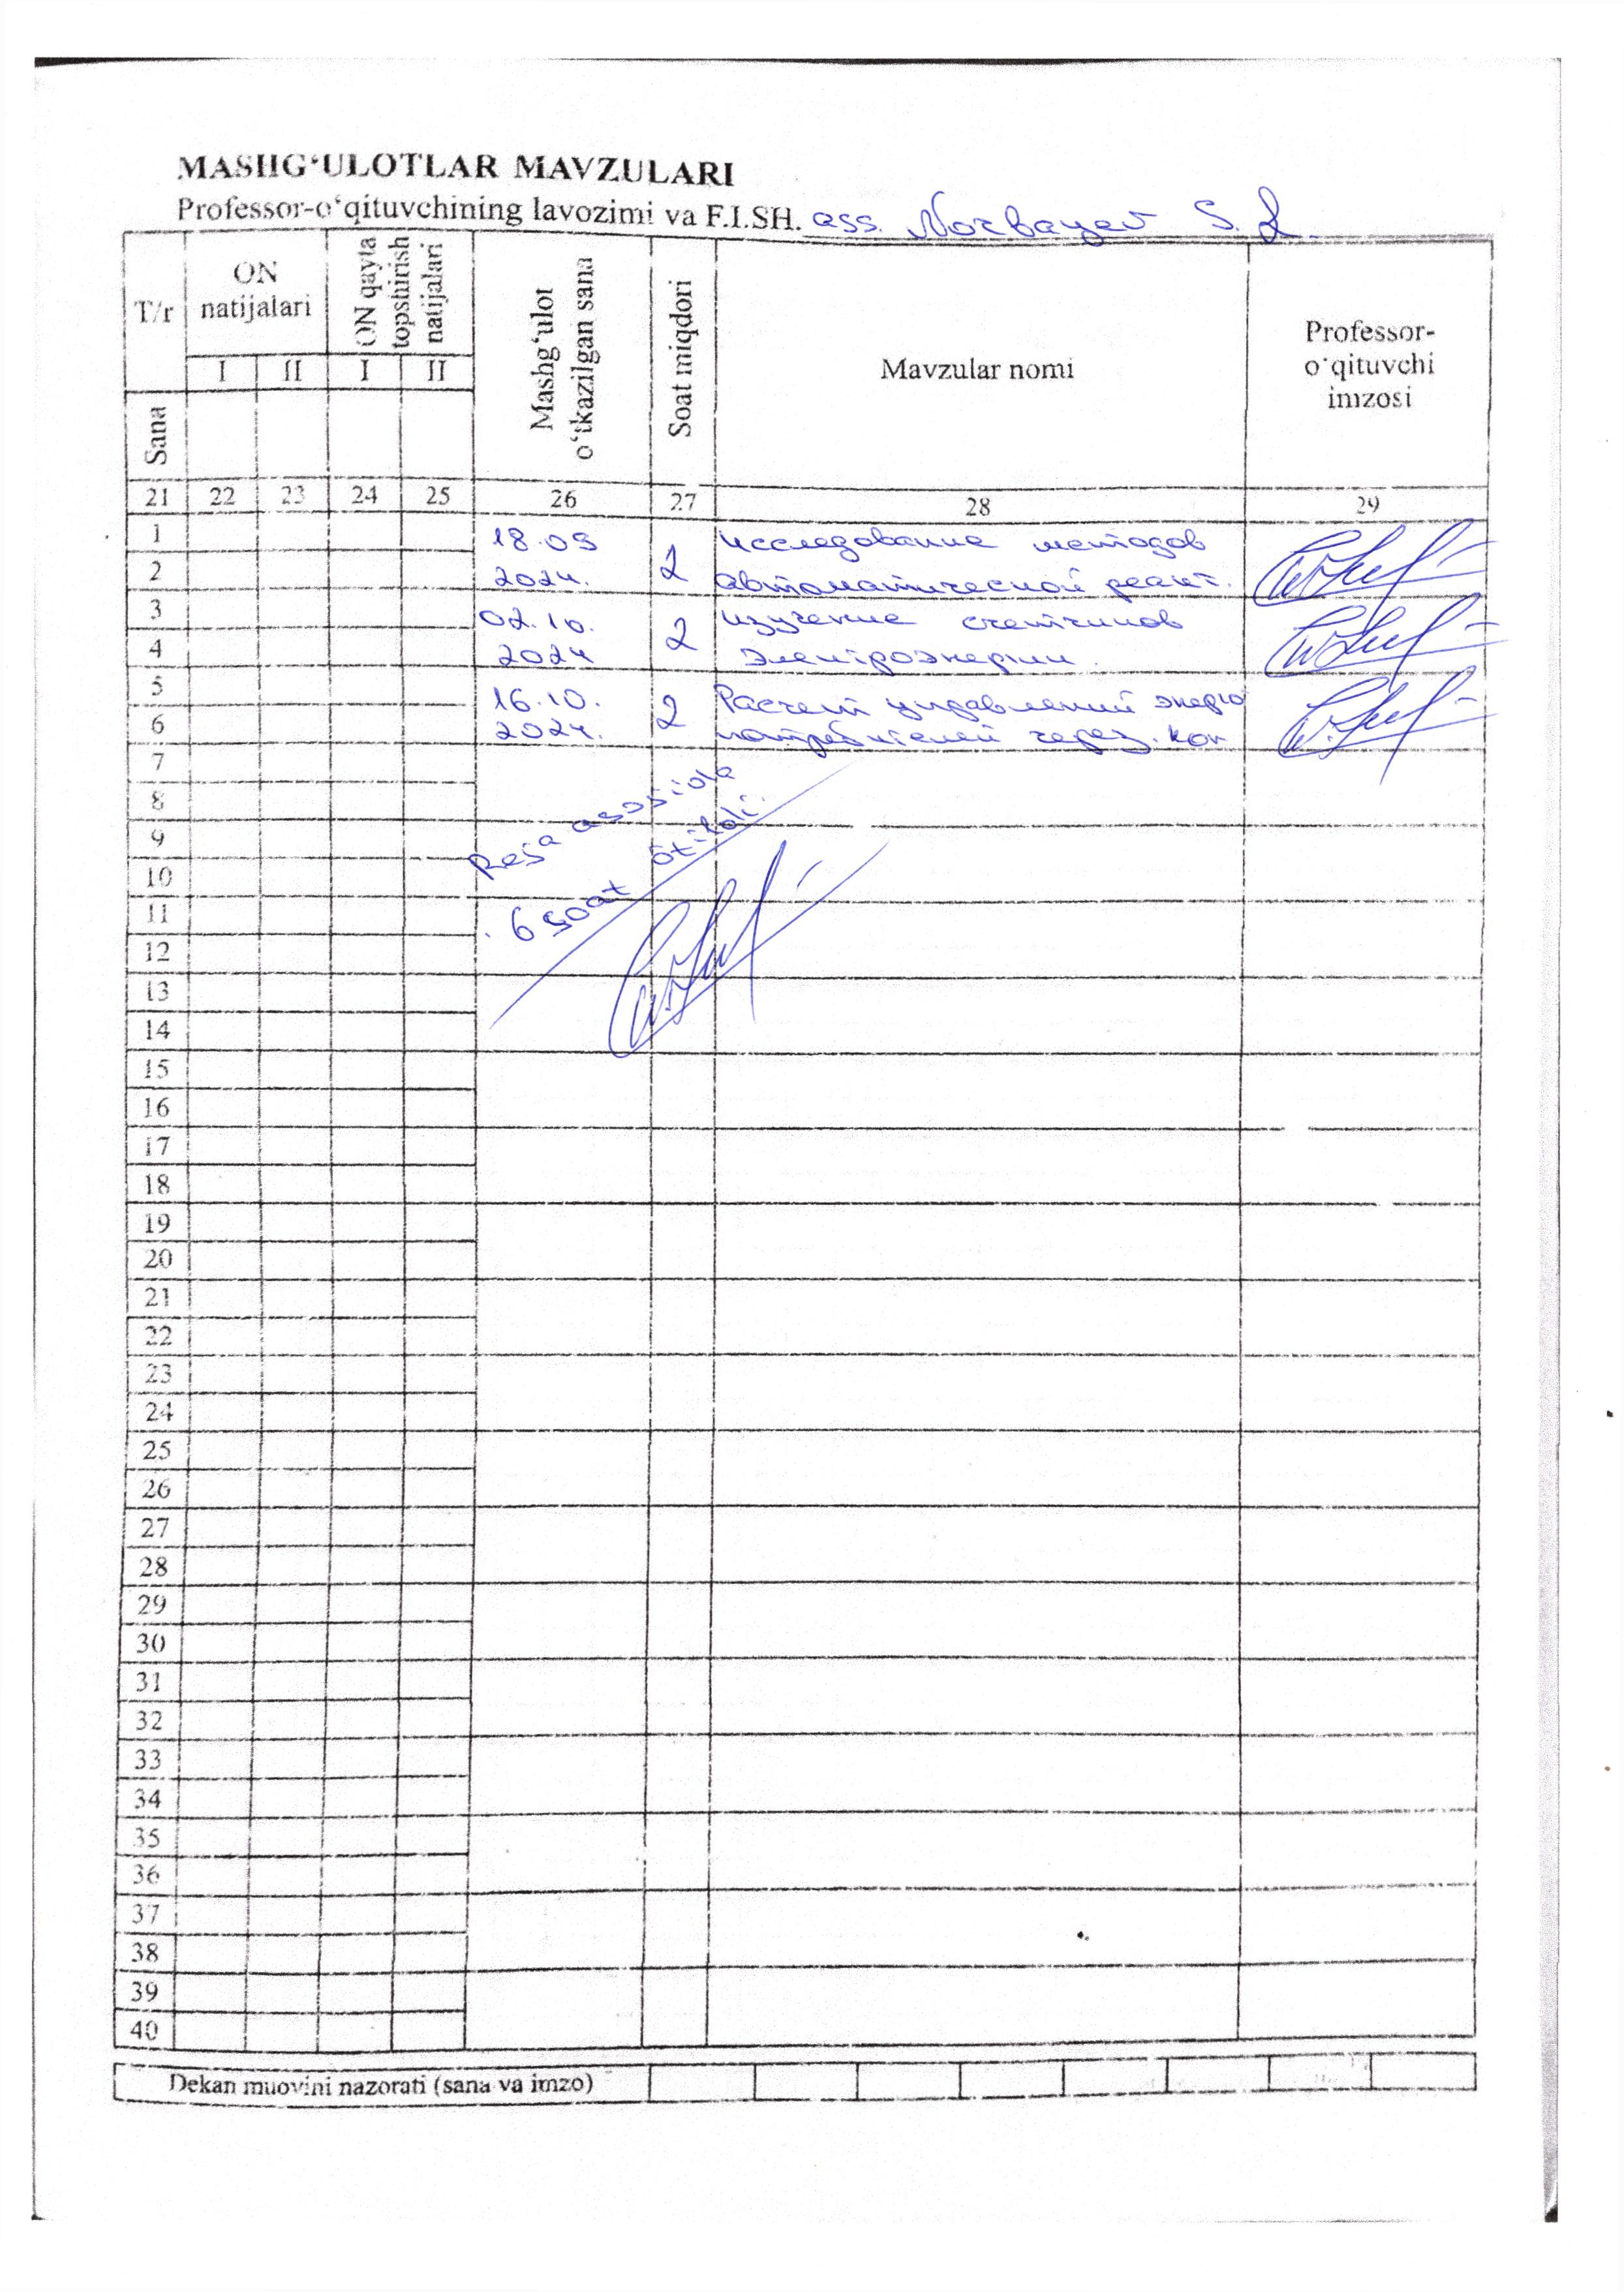 MASHG‘ULOTLAR MAVZULARI
Professor-o‘qituvchining lavozimi va F.I.SH. ass. Norbayev S. L.
T/r
ON natijalari
ON qayta topshirish natijalari
Mashg‘ulot o‘tkazilgan sana
Soat miqdori
Mavzular nomi
Professor-o‘qituvchi imzosi
I II I II
Sana
21 22 23 24 25 26 27 28 29
1 18.09 Исследование методов
2 2024. 2 автоматической реакт.
3 02.10. Изучение счетчиков
4 2024 2 электроэнергии.
5 16.10. Расчет управлений энерго
6 2024. 2 потребителей через. кон
7
8 Reja asosida
9
10 6 soat o‘tildi.
11
12
13
14
15
16
17
18
19
20
21
22
23
24
25
26
27
28
29
30
31
32
33
34
35
36
37
38
39
40
Dekan muovini nazorati (sana va imzo)